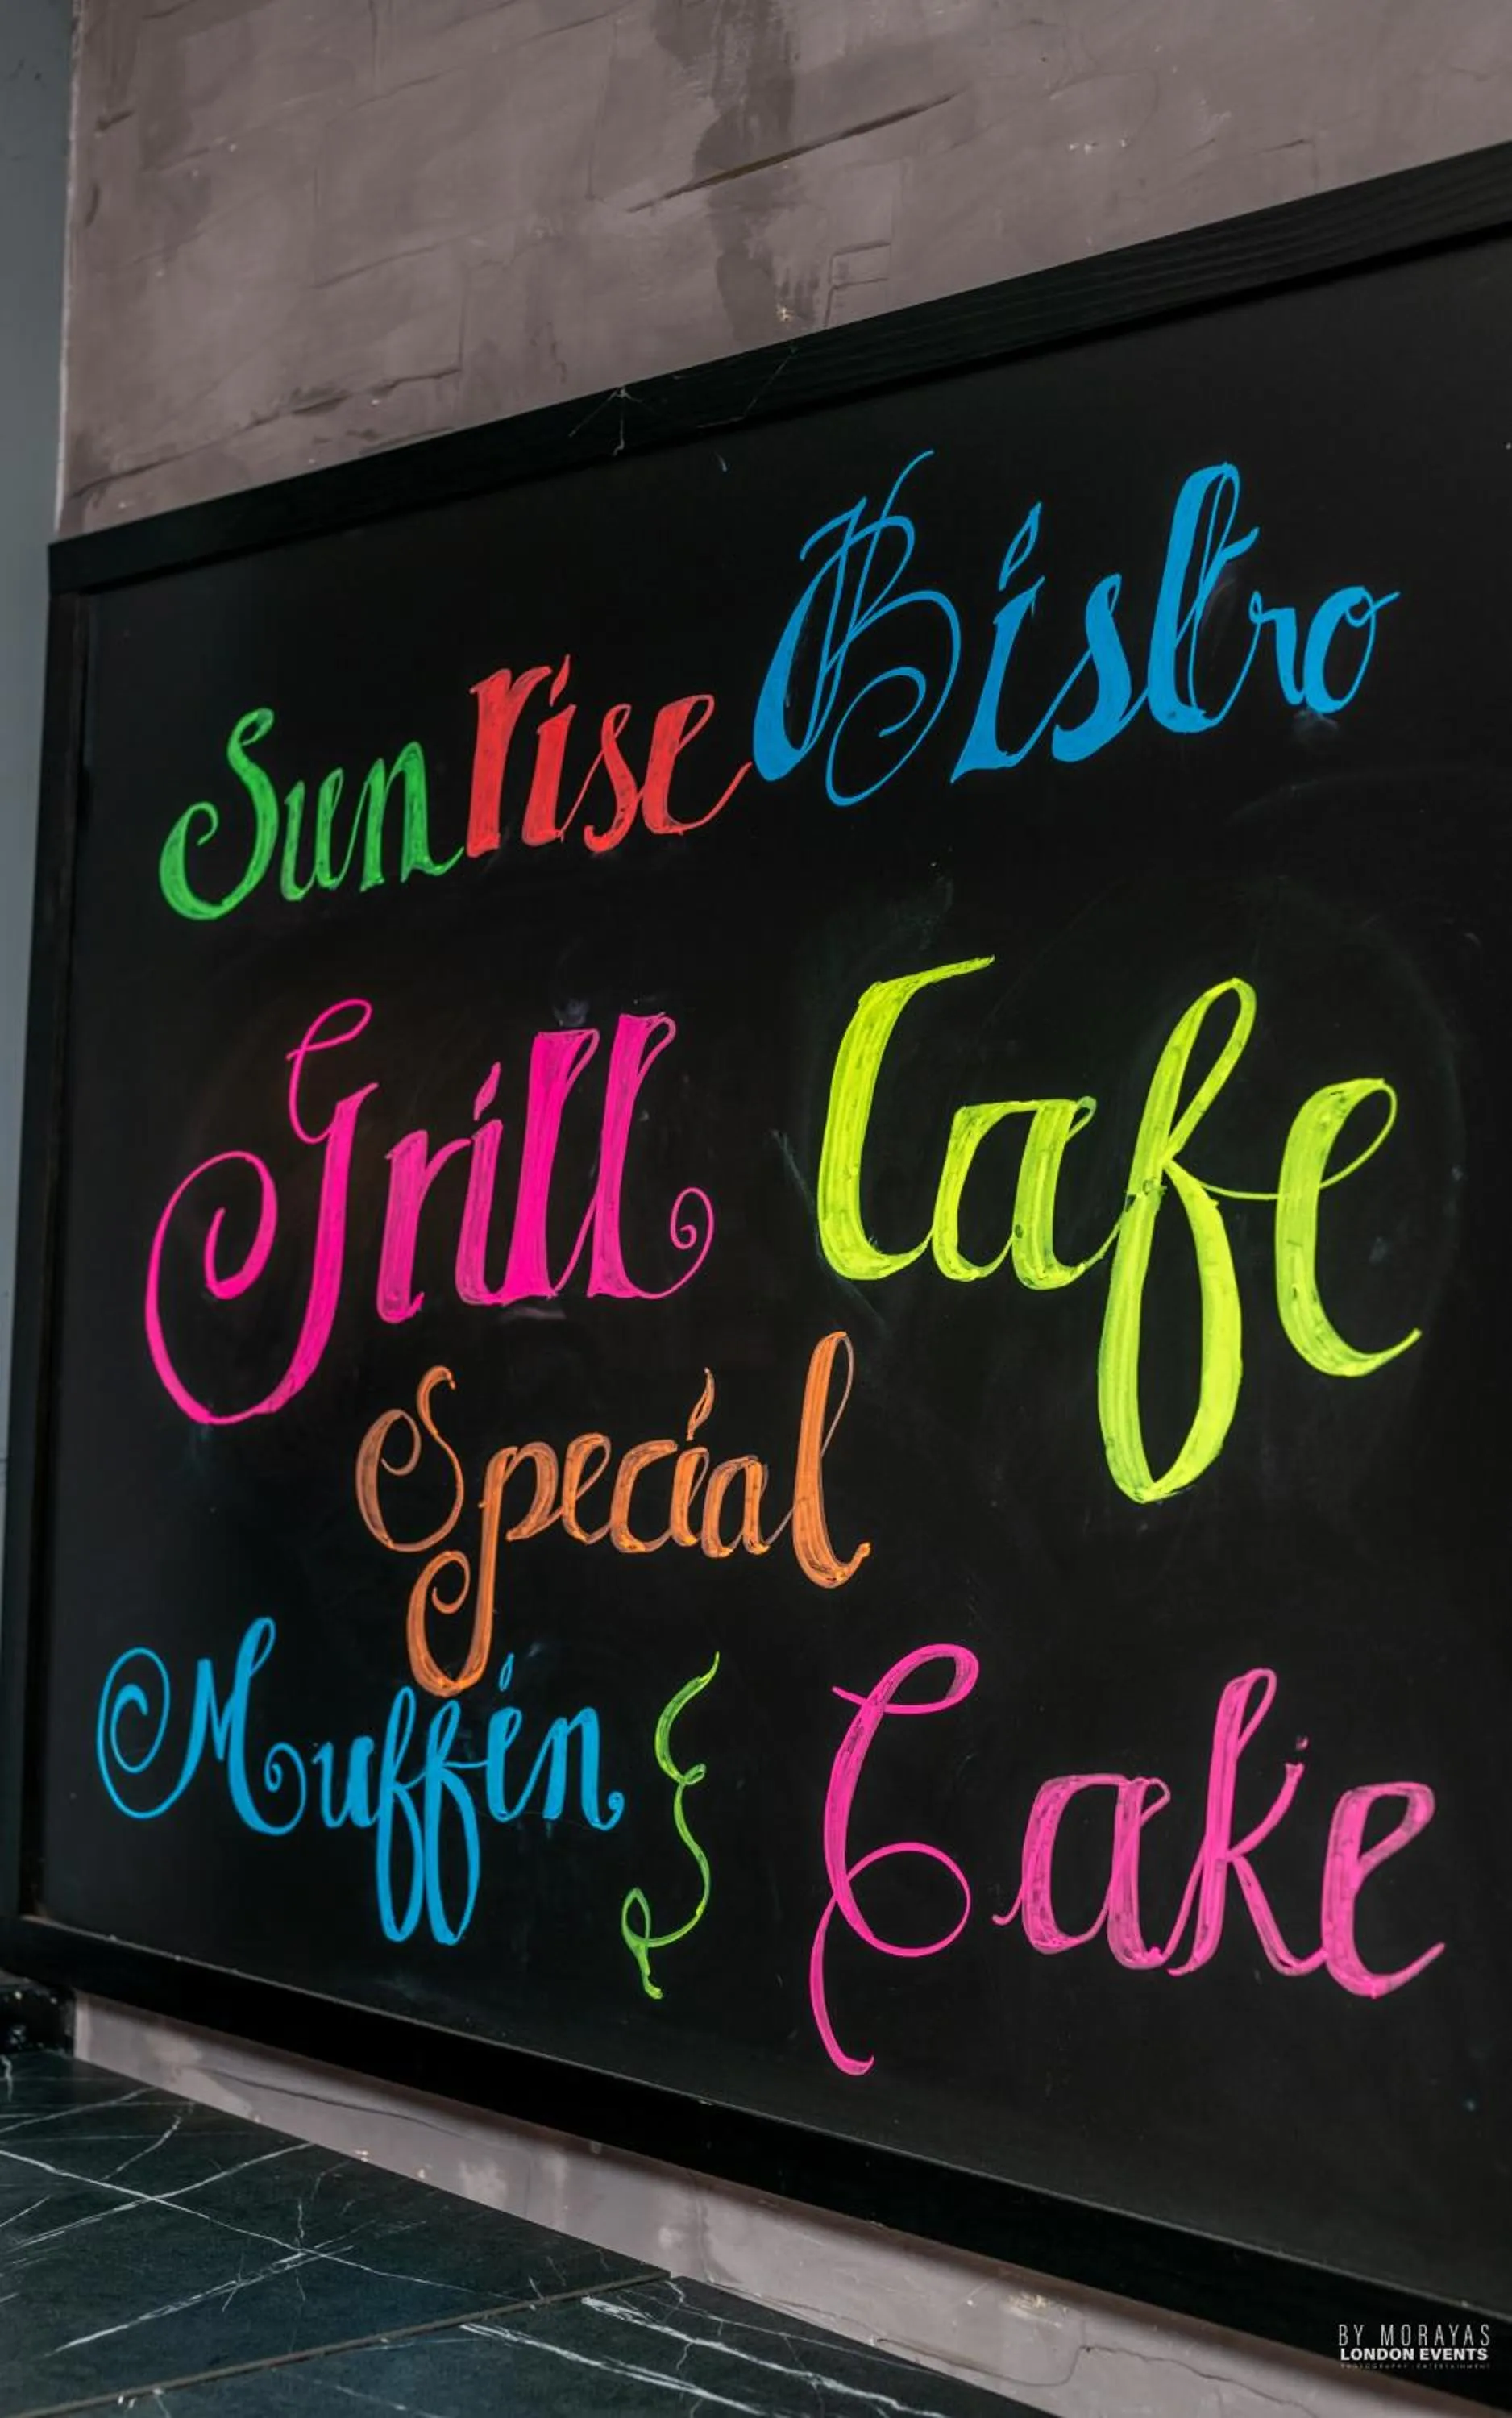 Sunrise Bistro
Grill Cafe
Special
Muffin & Cake
BY MORAYAS
LONDON EVENTS
PHOTOGRAPHY ENTERTAINMENT